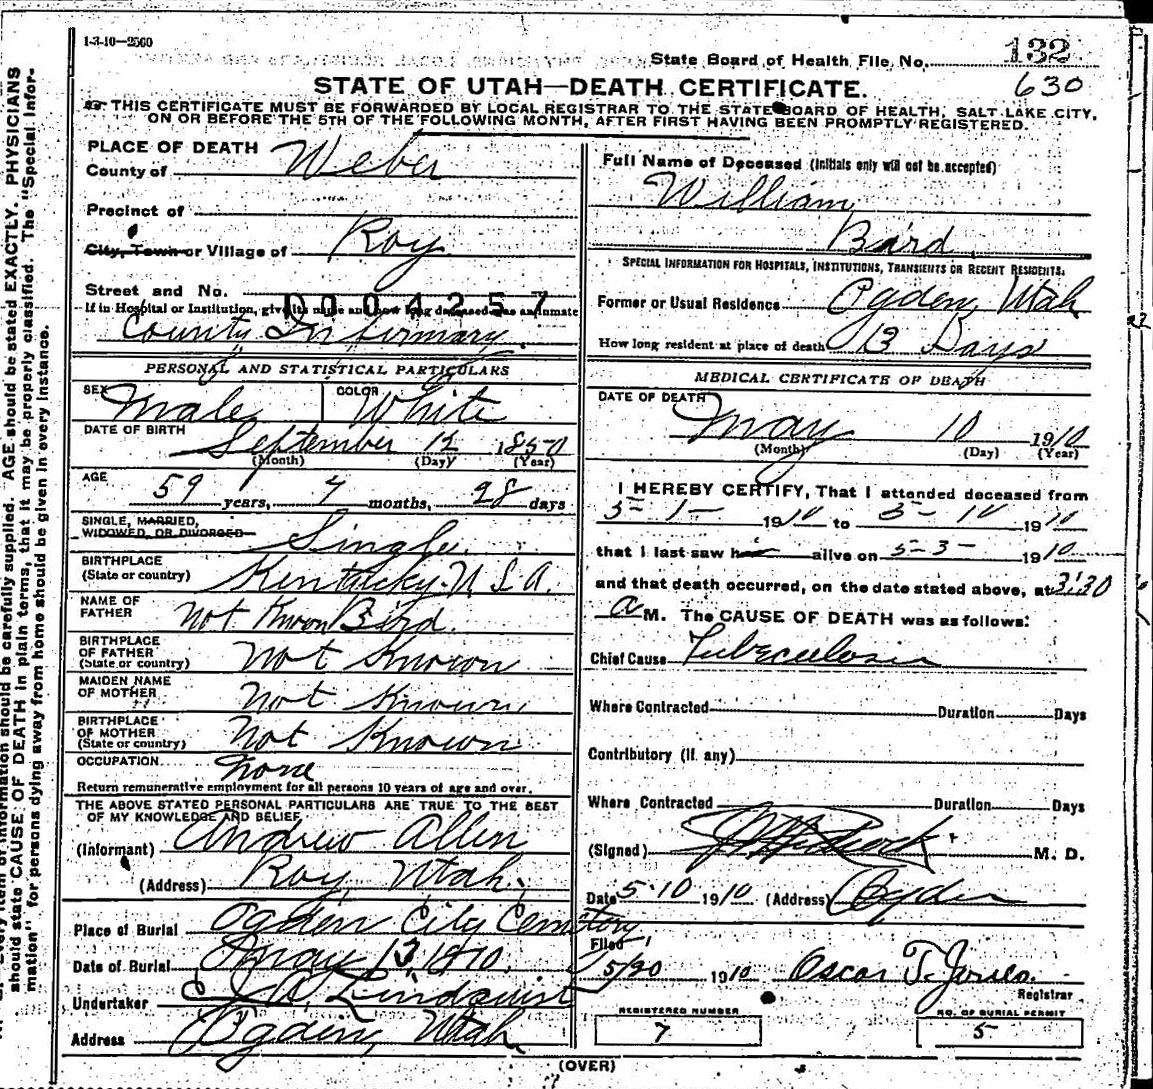 1-3-10—2500
State Board of Health File No. 132
630
STATE OF UTAH—DEATH CERTIFICATE.
THIS CERTIFICATE MUST BE FORWARDED BY LOCAL REGISTRAR TO THE STATE BOARD OF HEALTH, SALT LAKE CITY,
ON OR BEFORE THE 5TH OF THE FOLLOWING MONTH, AFTER FIRST HAVING BEEN PROMPTLY REGISTERED.
PLACE OF DEATH
County of Weber
Precinct of
City, Town or Village of Roy
Street and No.
0004257
If in Hospital or Institution, give its name and how long deceased was an inmate
County Infirmary
PERSONAL AND STATISTICAL PARTICULARS
SEX Male COLOR White
DATE OF BIRTH September 12 1850
(Month) (Day) (Year)
AGE 59 years, 7 months, 28 days
SINGLE, MARRIED,
WIDOWED, OR DIVORCED Single
BIRTHPLACE
(State or country) Kentucky U.S.A.
NAME OF
FATHER Not Known Bird
BIRTHPLACE
OF FATHER
(State or country) Not Known
MAIDEN NAME
OF MOTHER Not Known
BIRTHPLACE
OF MOTHER
(State or country) Not Known
OCCUPATION None
Return remunerative employment for all persons 10 years of age and over.
THE ABOVE STATED PERSONAL PARTICULARS ARE TRUE TO THE BEST
OF MY KNOWLEDGE AND BELIEF
(Informant) Andrew Allen
(Address) Roy, Utah.
Place of Burial Ogden City Cemetery
Date of Burial May 13 1910.
Undertaker Lindquist
Address Ogden, Utah
Full Name of Deceased (Initials only will not be accepted)
William
Bard
SPECIAL INFORMATION FOR HOSPITALS, INSTITUTIONS, TRANSIENTS OR RECENT RESIDENTS.
Former or Usual Residence Ogden, Utah
How long resident at place of death 13 Days
MEDICAL CERTIFICATE OF DEATH
DATE OF DEATH
May 10 1910
(Month) (Day) (Year)
I HEREBY CERTIFY, That I attended deceased from
5-1- 1910 to 5-10 1910
that I last saw h alive on 5-3- 1910
and that death occurred, on the date stated above, at 3:30
a M. The CAUSE OF DEATH was as follows:
Chief Cause Tuberculosis
Where Contracted Duration Days
Contributory (if any)
Where Contracted Duration Days
(Signed) M. D.
Date 5-10 1910 (Address) Ogden
Filed
5/20 1910 Oscar T.
Registrar
REGISTERED NUMBER
7
NO. OF BURIAL PERMIT
5
(OVER)
item of information should be carefully supplied. AGE should be stated EXACTLY. PHYSICIANS
should state CAUSE OF DEATH in plain terms, that it may be properly classified. The "Special Infor-
mation" for persons dying away from home should be given in every instance.